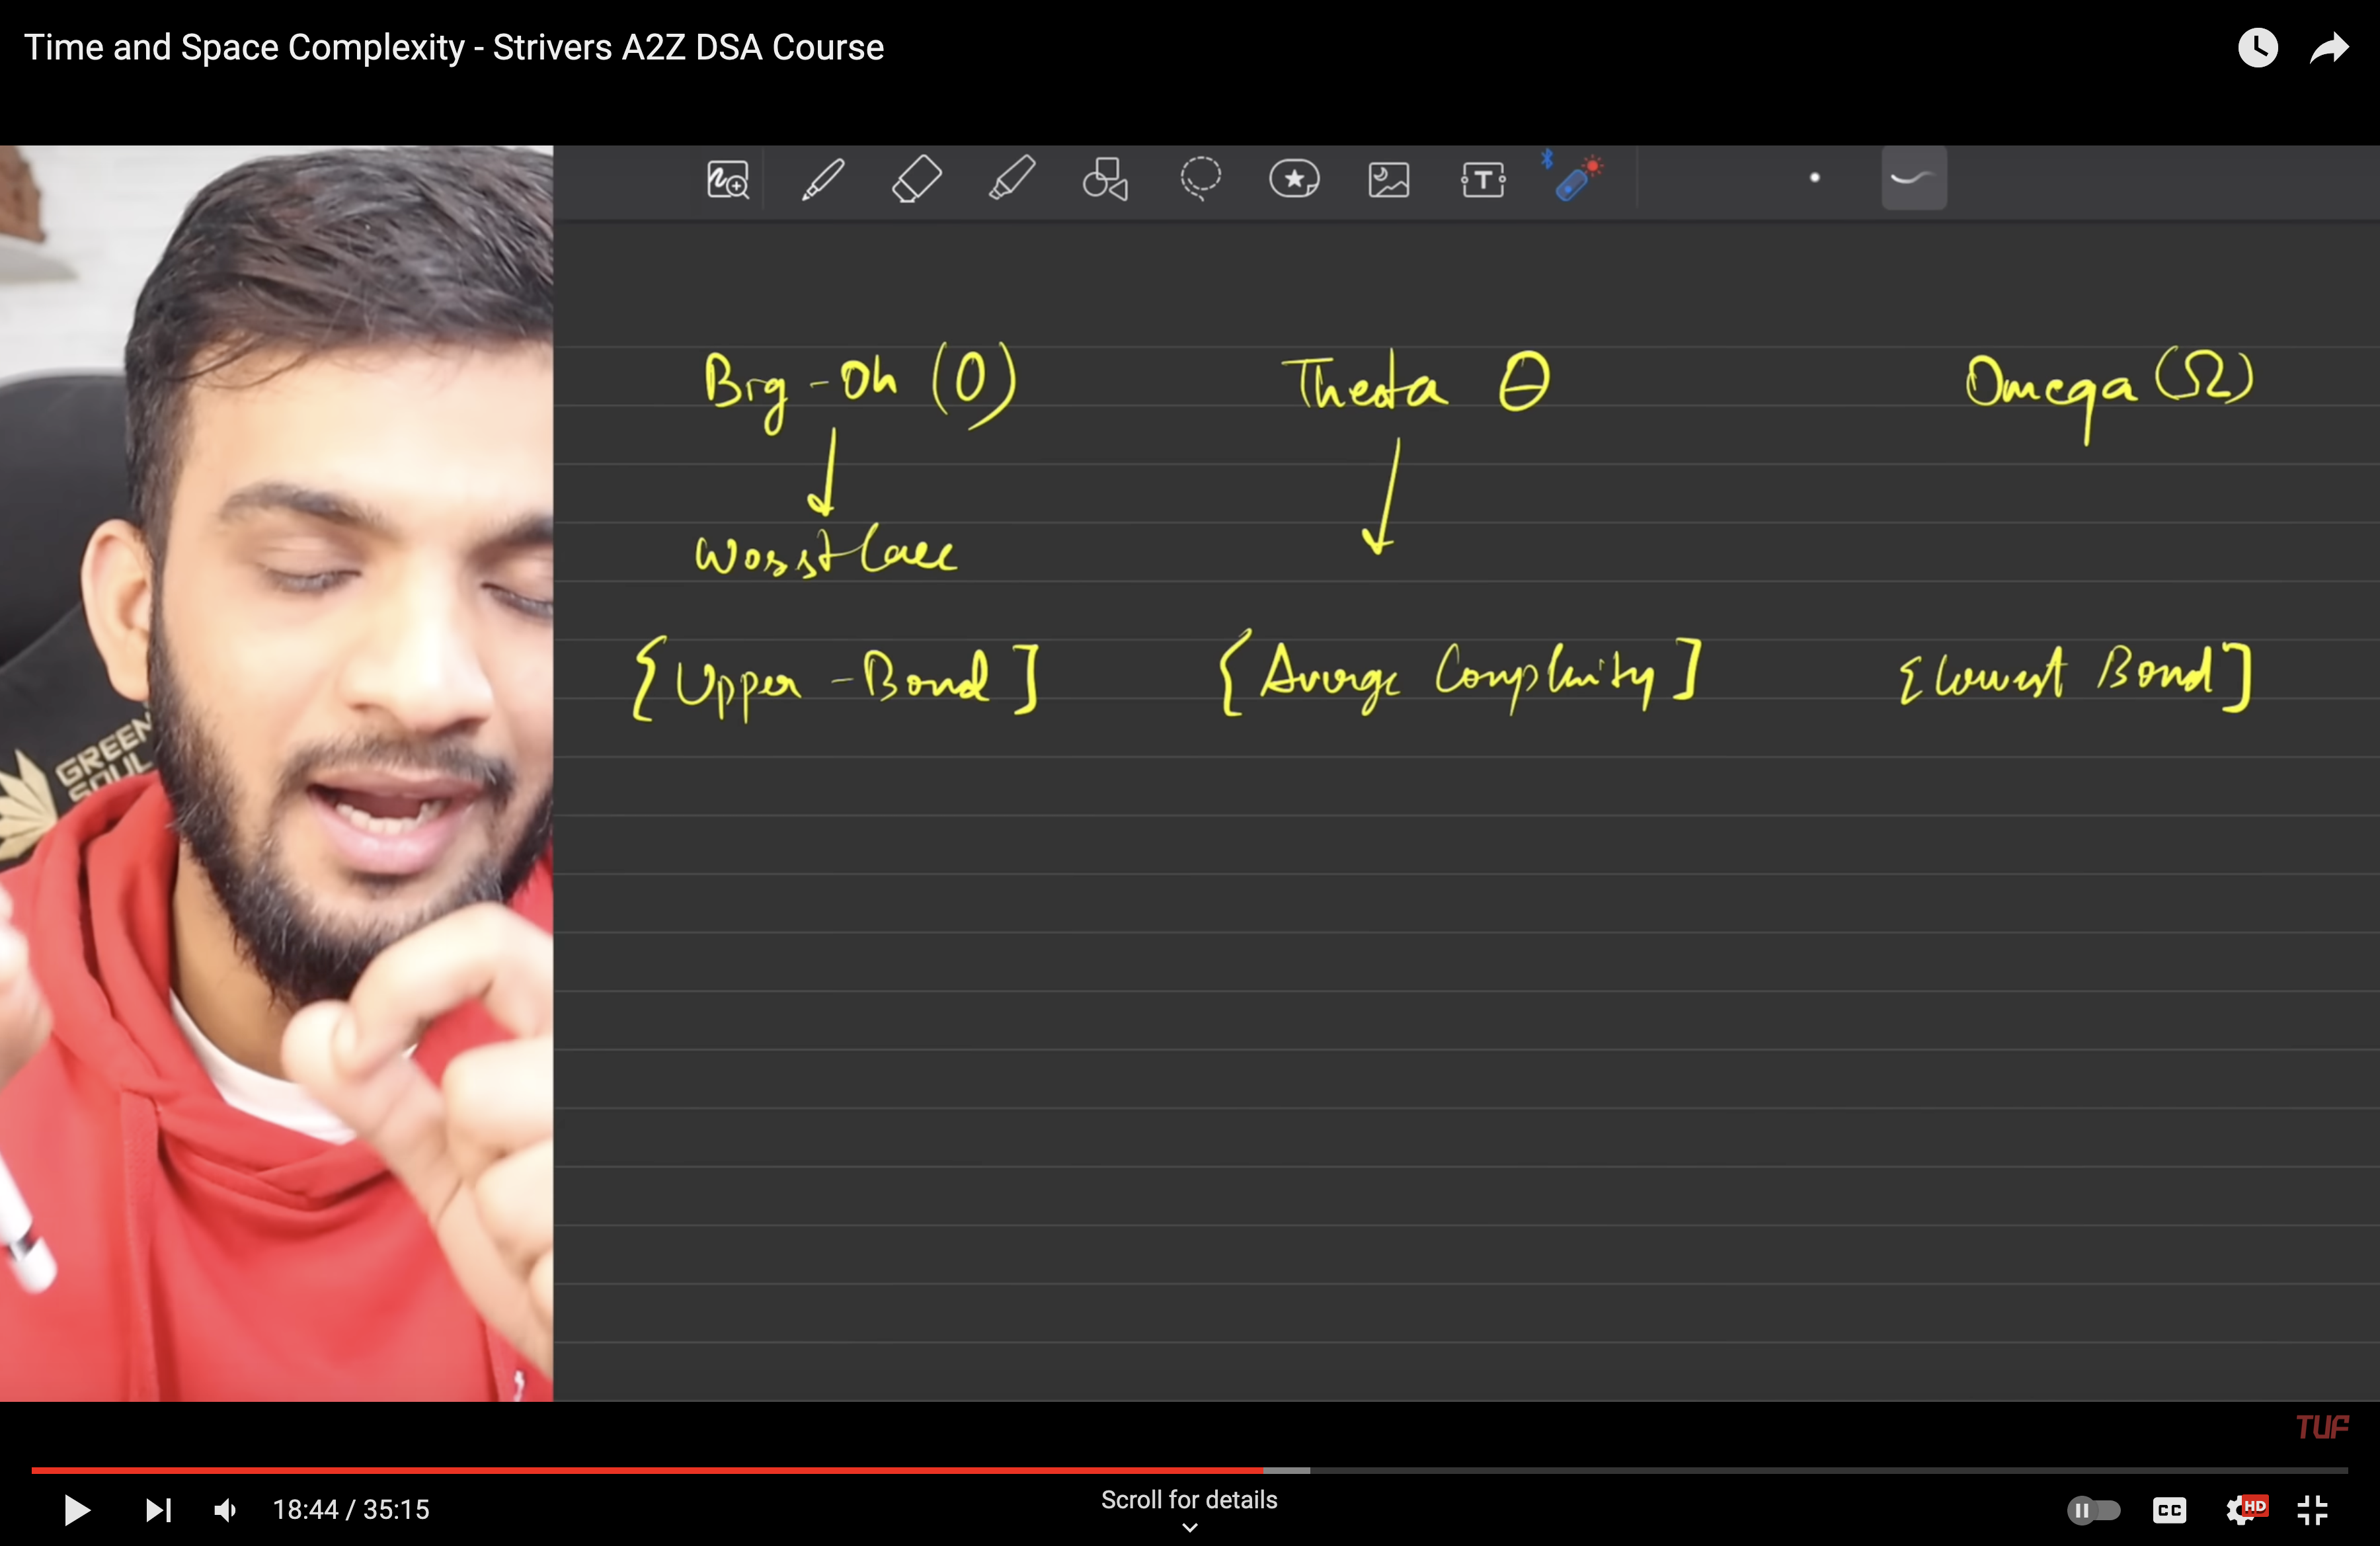 Time and Space Complexity - Strivers A2Z DSA Course
T
Big-Oh (O) Theata Θ Omega (Ω)
Worst Case
{Upper - Bond] {Average Complexity] {lowest Bond]
GREEN
SOUL
TUF
18:44 / 35:15
Scroll for details
CC
HD